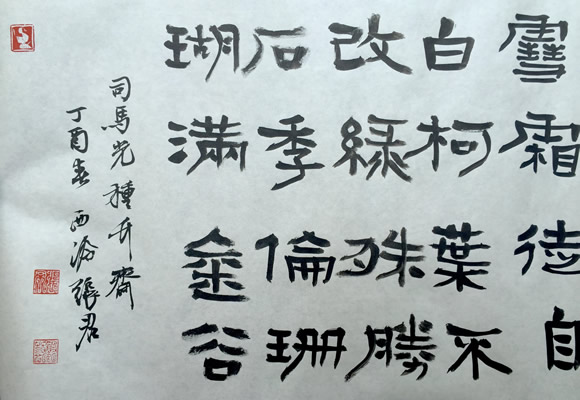 雪霜徒自
白柯葉不
改綠殊勝
石季倫珊
瑚滿金谷
司馬光種竹齋
丁酉春 西泠張君